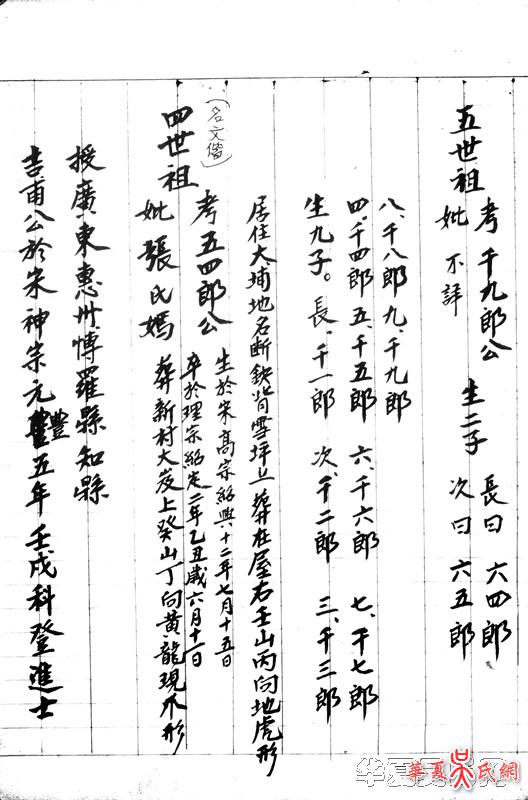 吉甫公於宋神宗元豐五年壬戌科登進士
授廣東惠州博羅縣知縣
四世祖
(名文偕)
考五四郎公
生於宋髙宗紹興十二年七月十五日
卒於理宗紹定二年乙丑歲六月十一日
妣張氏媽 葬新村大岌上癸山丁向黄龍現爪形
居住大埔地名断背雪坪上葬在屋右壬山丙向地虎形
生九子。長、千一郎 次、千二郎 三、千三郎
四、千四郎 五、千五郎 六、千六郎 七、千七郎
八、千八郎 九、千九郎
五世祖
考千九郎公
妣不詳
生二子
長曰六四郎
次曰六五郎
華夏吴氏網